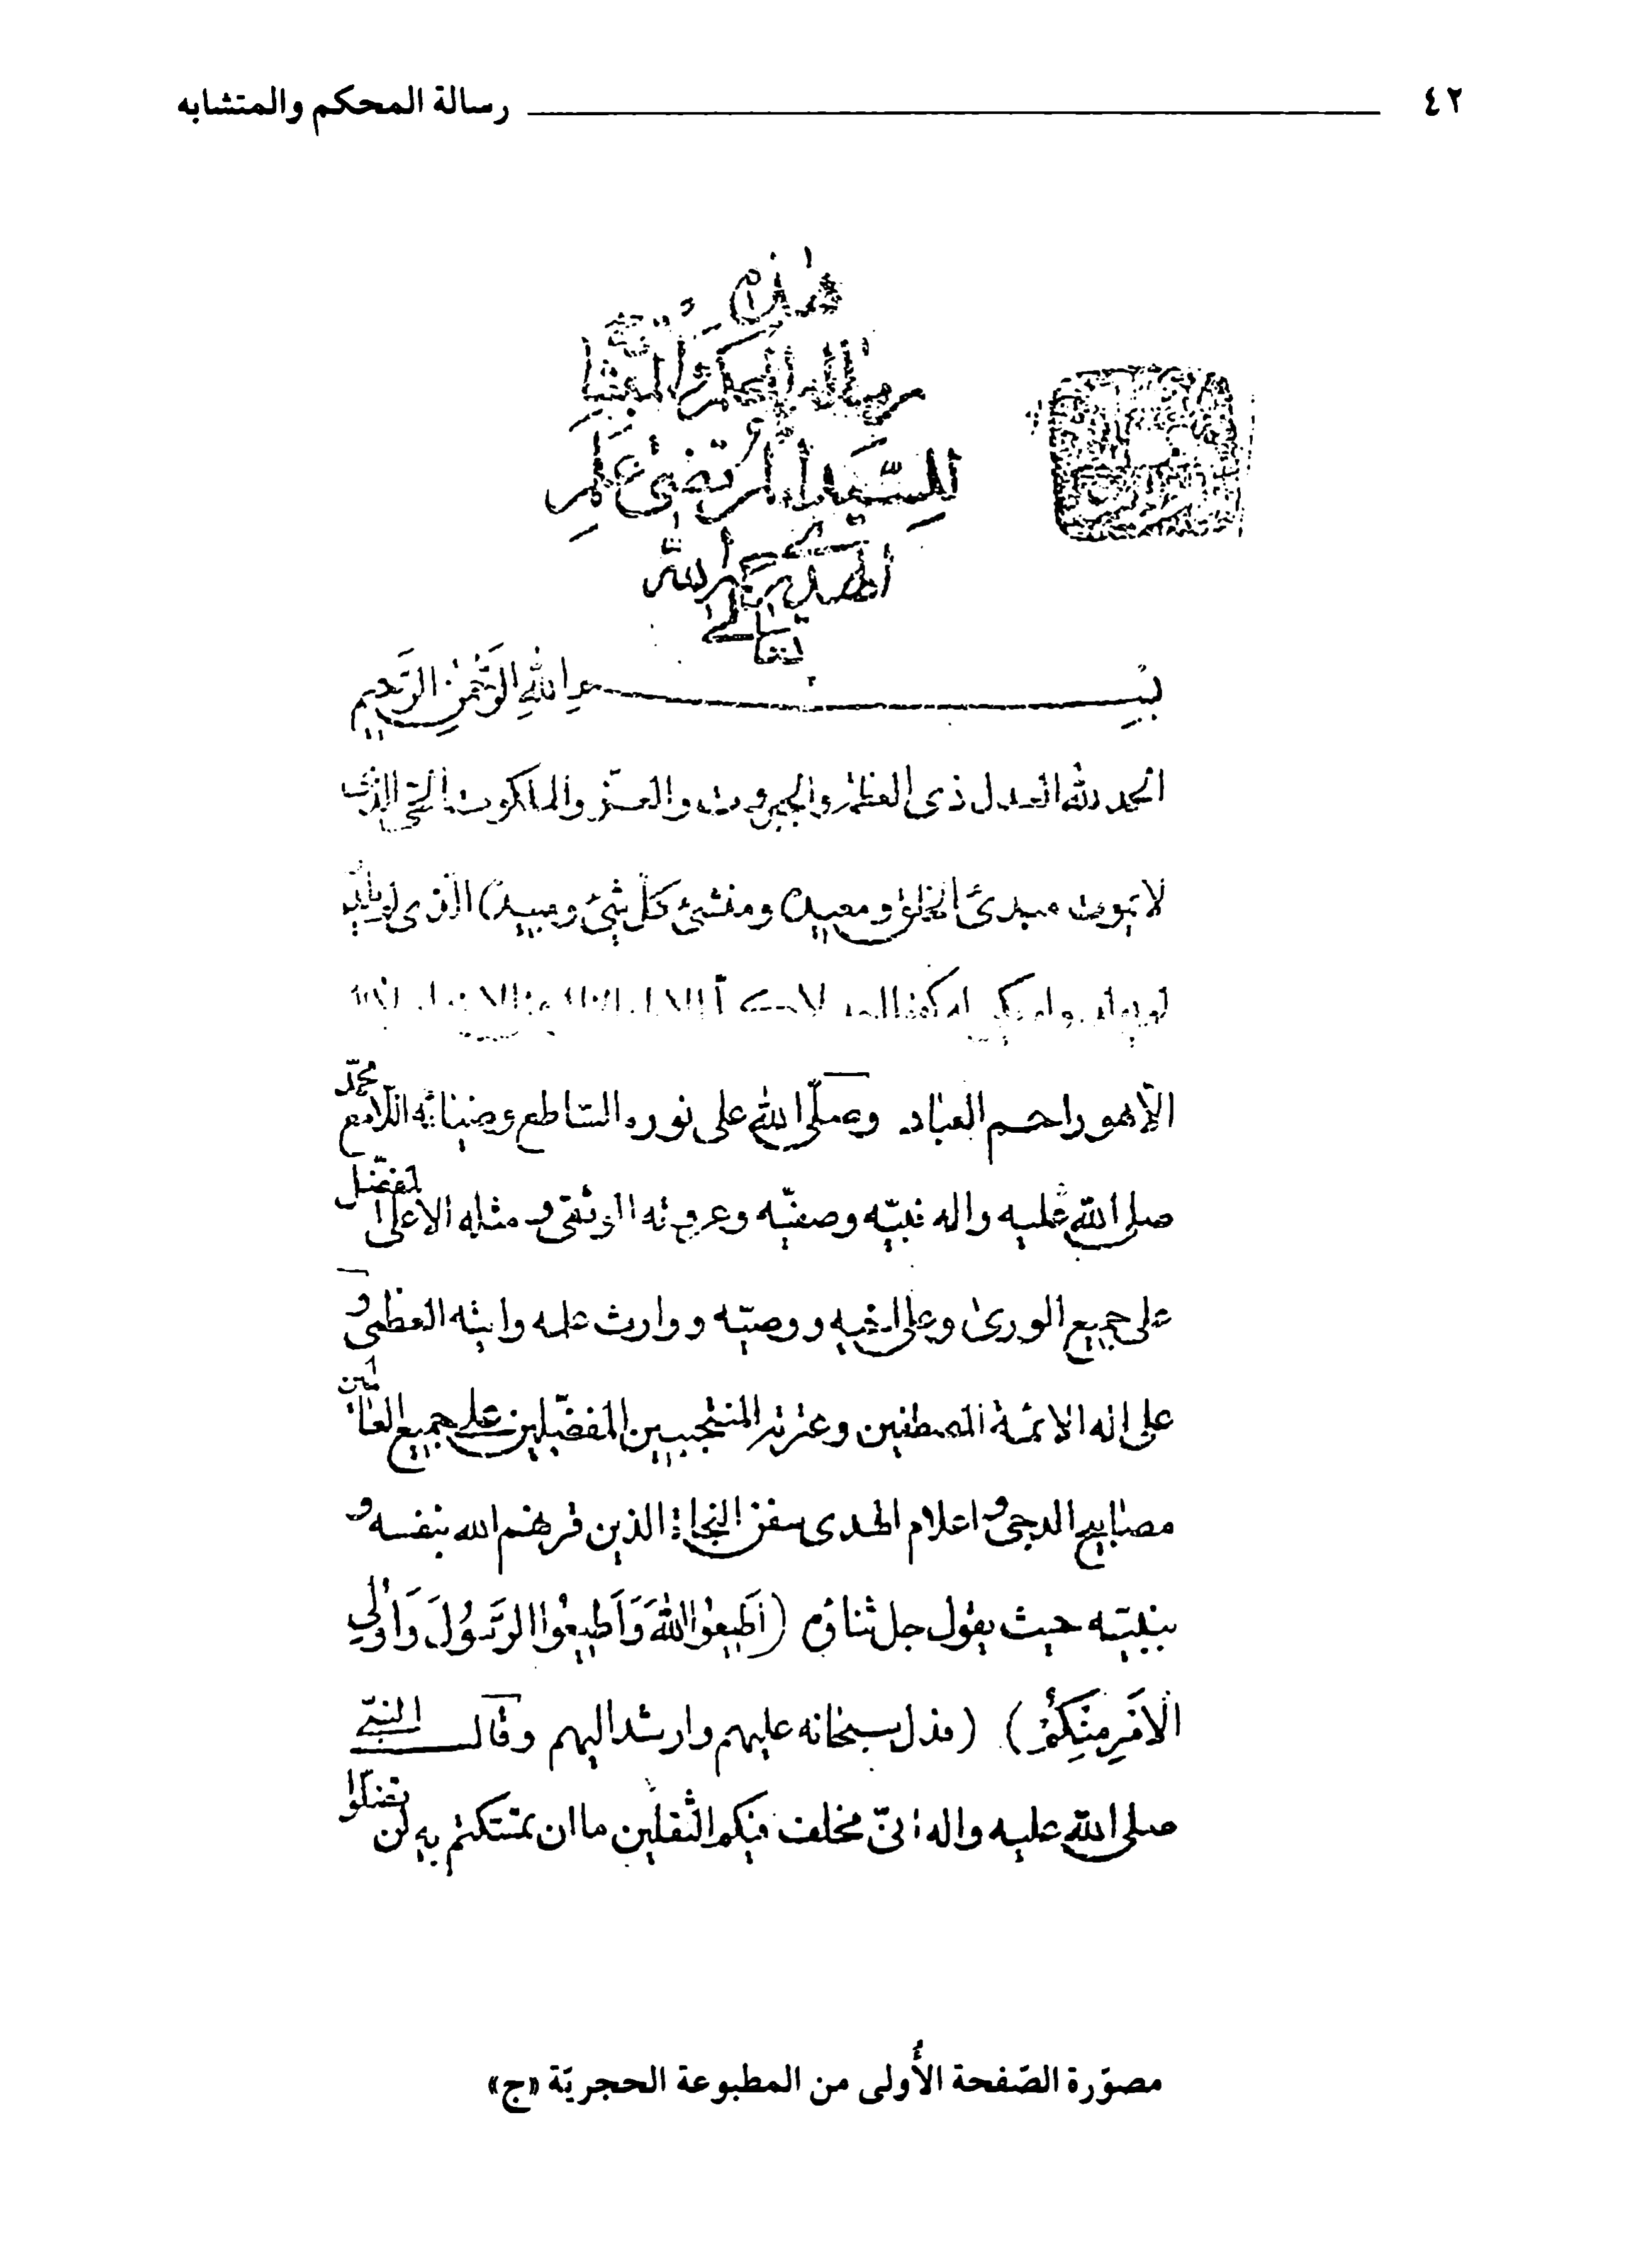 ٤٢ رسالة المحكم والمتشابه
هذه
رسالة المحكم والمتشابه
للسيّد المرتضىٰ علم
الهدى رحمه الله
تعالى
بسم الله الرّحمٰن الرّحيم
الحمد لله العدل ذى العظمة والجبروت والعزّ والملكوت الحىّ الذى
لا يموت مبدئ الخلق ومعيده ومنشئ كلّ شئ ومبيده الّذى لم يلد
لم يولد ولم يكن له كفوا احد
الّا هو راحم العباد وصلّى الله على نوره السّاطع وضيائه اللّامع محمّد
صلى الله عليه واله نبيّه وصفيّه وعروته الوثقى ومثله الاعلى المفضّل
على جميع الورىٰ وعلى اخيه ووصيّه ووارث علمه وايته العظمى و
على اله الائمّة المصطفين وعترته المنتجبين المفضّلين على جميع العالمين
مصابيح الدجى واعلام الهدى سفن النجاة الذين قرنهم الله بنفسه و
بنبيّه حيث يقول جل ثناؤه (اَطيعُوا اللهَ وَاَطيعُوا الرَّسُولَ وَاُولِي
الاَمْرِ مِنْكُمْ) (فدل سبحانه عليهم وارشد اليهم وقال النبىّ
صلى الله عليه واله انىّ مخلف فيكم الثّقلين ما ان تمسّكتم به لن تضلّوا
مصوّرة الصّفحة الأُولى من المطبوعة الحجريّة «ج»